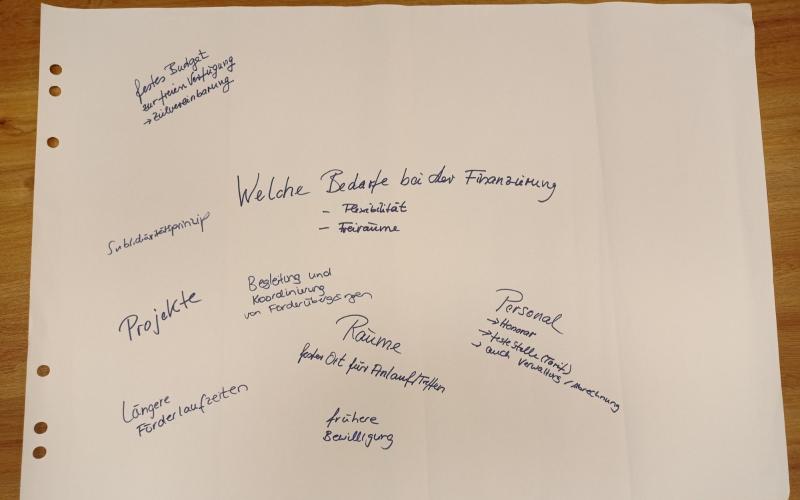 festes Budget
zur freien Verfügung
→ Zielvereinbarung
Welche Bedarfe bei der Finanzierung
- Flexibilität
- Freiräume
Subsidiaritätsprinzip
Projekte
Begleitung und
Koordinierung
von Förderübergängen
Räume
fester Ort für Anlauf/Treffen
Personal
→ Honorar
→ feste Stelle (Tarif)
→ auch Verwaltung / Abrechnung
Längere
Förderlaufzeiten
frühere
Bewilligung